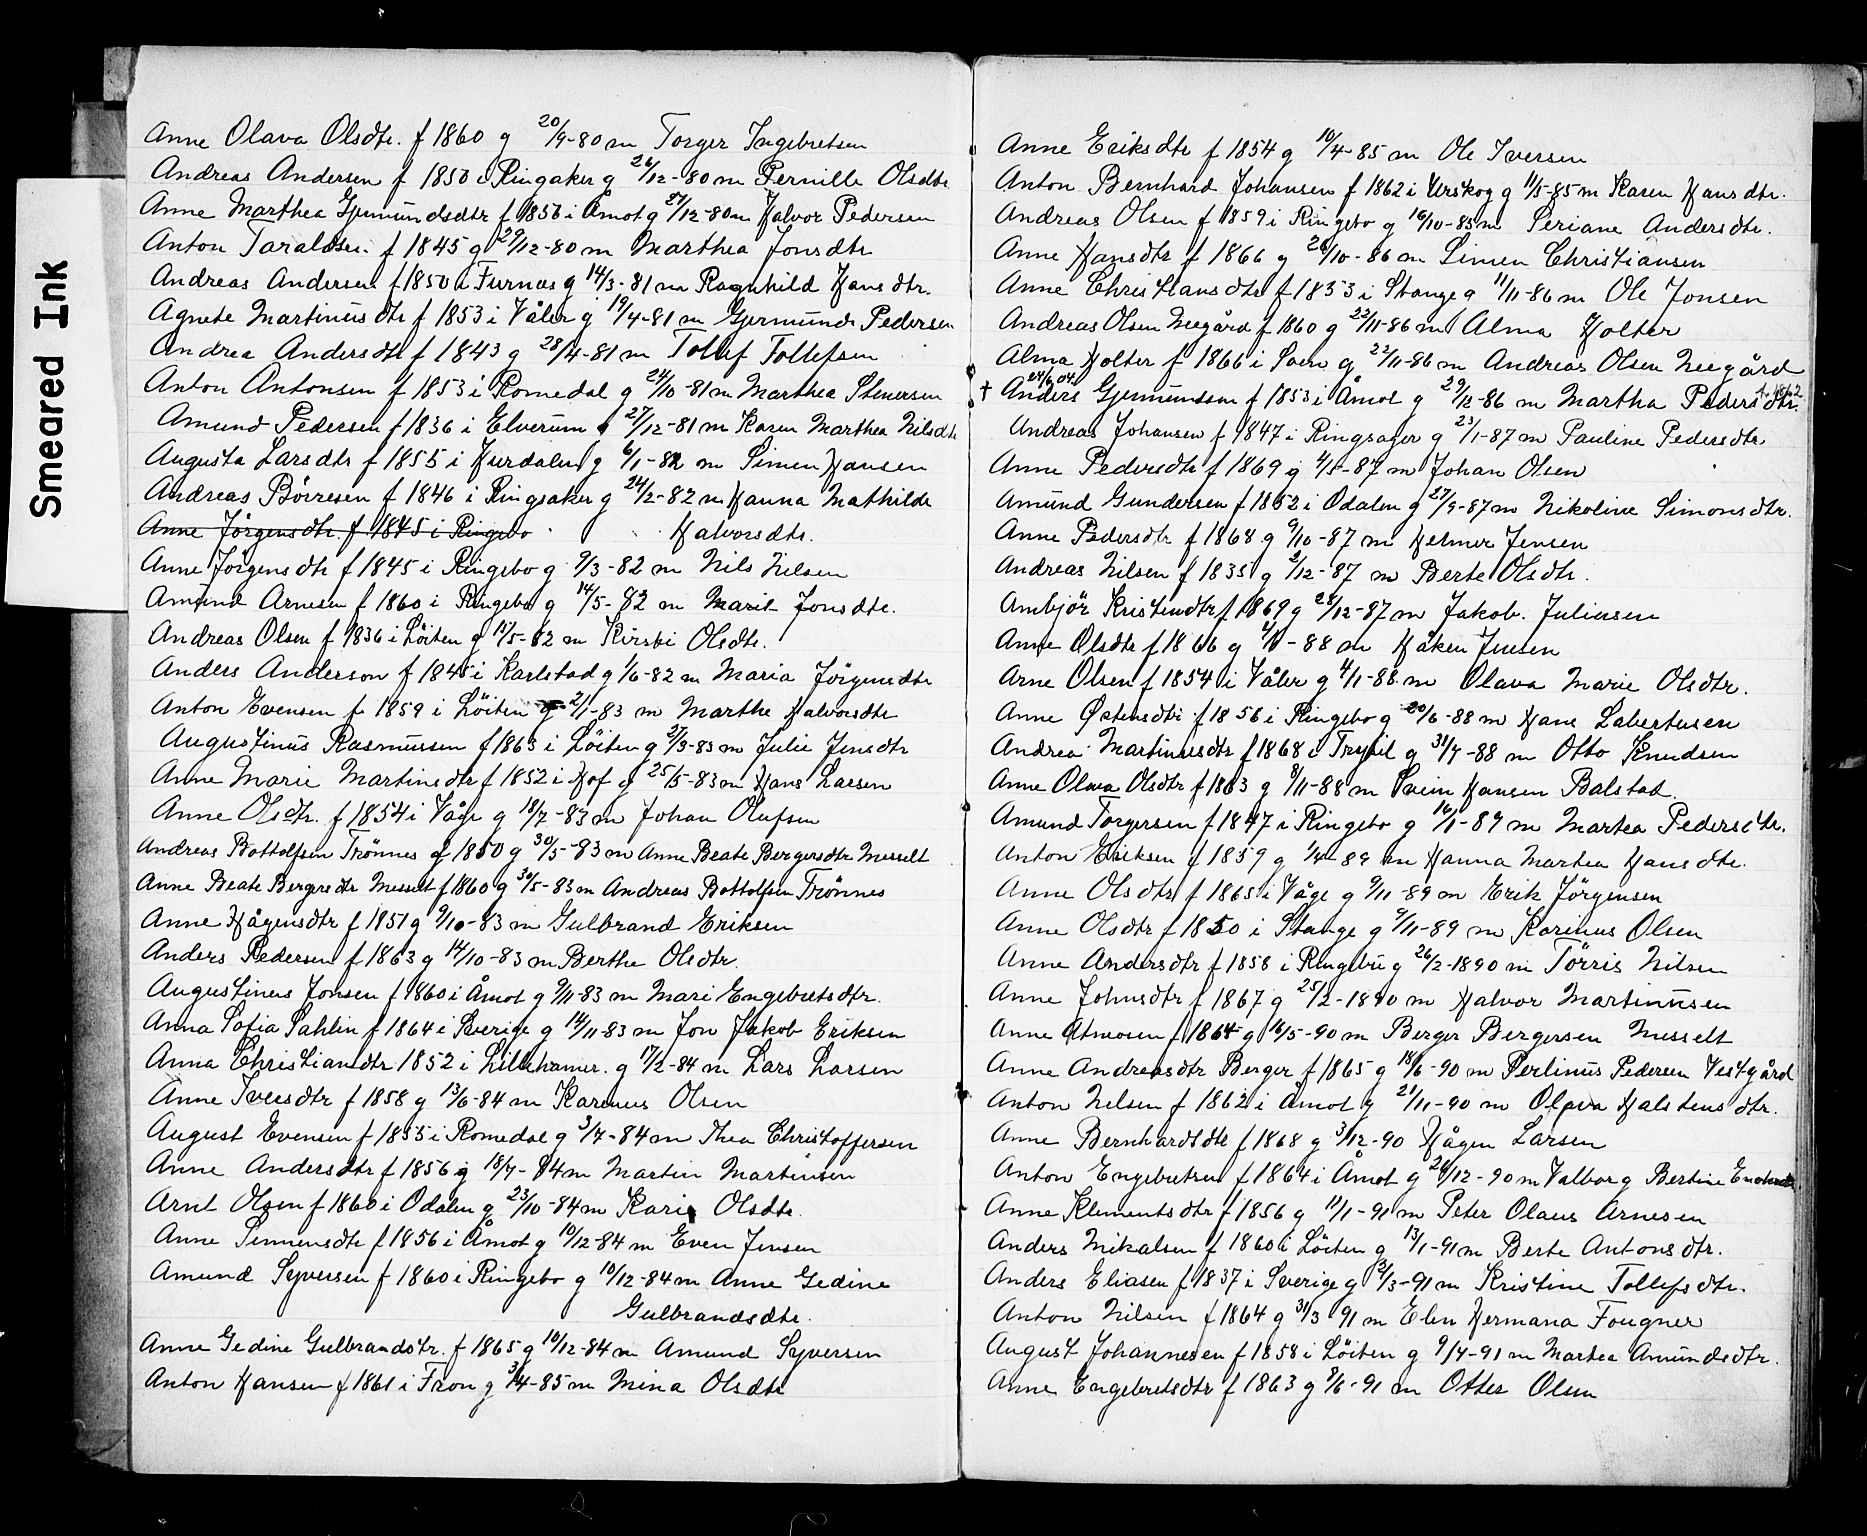 Smeared Ink
Anne Olava Olsdtr. f 1860 g 20/9-80 m Torger Ingebretsen
Andreas Andersen f 1850 i Ringsaker g 26/12-80 m Pernille Olsdtr
Anne Marthea Gjermundsdtr f 1856 i Åmot g 27/12-80 m Halvor Pedersen
Anton Taraldsen f 1845 g 29/12-80 m Marthea Jonsdtr
Andreas Andersen f 1850 i Furnes g 14/3-81 m Ragnhild Hansdtr.
Agnete Martinusdtr f 1853 i Våler g 19/4-81 m Gjermund Pedersen
Andrea Andersdtr f 1843 g 28/4-81 m Tollef Tollefsen
Anton Antonsen f 1853 i Romedal g 24/10-81 m Marthea Stenersen
Amund Pedersen f 1836 i Elverum g 27/12-81 m Karen Marthea Nilsdtr
Augusta Larsdtr f 1855 i Hurdalen g 6/1-82 m Simen Hansen
Andreas Börresen f 1846 i Ringsaker g 24/2-82 m Hanna Mathilde
Anne Jörgensdtr. f 1845 i Ringebo Halvorsdtr.
Anne Jörgensdtr f 1845 i Ringebo g 9/3-82 m Nils Nilsen
Amund Arnesen f 1860 i Ringebo g 14/5-82 m Marit Jonsdtr.
Andreas Olsen f 1836 i Löiten g 15/5-82 m Kirsti Olsdtr.
Anders Anderson f 1845 i Karlstad g 1/6-82 m Maria Jörgensdtr
Anton Evensen f 1859 i Löiten g 2/1-83 m Marthe Halvorsdtr
Augustinus Rasmussen f 1863 i Löiten g 2/3-83 m Julie Jensdtr
Anne Marie Martinsdtr f 1852 i Hof g 25/5-83 m Hans Larsen
Anne Olsdtr. f 1854 i Våge g 18/7-83 m Johan Olufsen
Andreas Bottolfsen Trönnes f 1850 g 30/5-83 m Anne Beate Bergersdtr Messelt
Anne Beate Bergersdtr Messelt f 1860 g 30/5-83 m Andreas Bottolfsen Trönnes
Anne Hågensdtr f 1851 g 9/10-83 m Gulbrand Eriksen
Anders Pedersen f 1863 g 14/10-83 m Berthe Olsdtr.
Augustinus Jonsen f 1860 i Åmot g 9/11-83 m Mari Engebretsdtr.
Anna Sofia Sahlin f 1864 i Sverige g 14/11-83 m Jon Jakob Eriksen
Anna Christiansdtr 1852 i Lillehamer. g 17/2-84 m Lars Larsen
Anne Iversdtr f 1858 g 13/6-84 m Karinus Olsen
August Evensen f 1855 i Romedal g 3/7-84 m Thea Christoffersen
Anne Andersdtr f 1856 g 18/7-84 m Martin Martinsen
Arnt Olsen f 1860 i Odalen g 23/10-84 m Kari Olsdtr.
Anne Simensdtr f 1856 i Åmot g 10/12-84 m Even Jensen
Amund Syversen f 1860 i Ringebo g 10/12-84 m Anne Gedine
Gulbrandsdtr.
Anne Gedine Gulbrandsdtr. f 1865 g 10/12-84 m Amund Syversen
Anton Hansen f 1861 i Fron g 3/4-85 m Mina Olsdtr
Anne Eriksdtr f 1854 g 10/4-85 m Ole Iversen
Anton Bernhard Johansen f 1862 i Urskog g 11/5-85 m Karen Hansdtr.
Andreas Olsen f 1859 i Ringebo g 16/10-85 m Seriane Andersdtr.
Anne Hansdtr f 1866 g 26/10-86 m Simen Christiansen
Anne Christiansdtr f 1853 i Stange g 11/11-86 m Ole Jonsen
Andreas Olsen Neegård f 1860 g 22/11-86 m Alma Holter
Alma Holter f 1866 i Soen g 22/11-86 m Andreas Olsen Neegård
† 24/6 04 Anders Gjermundsen f 1853 i Åmot g 29/12-86 m Martha Pedersdtr. f. 1862
Andreas Johansen f 1847 i Ringsager g 23/1-87 m Pauline Pedersdtr
Anne Pedersdtr f 1869 g 4/5-87 m Johan Olsen
Amund Gundersen f 1852 i Odalen g 27/9-87 m Nikoline Simonsdtr.
Anne Pedersdtr f 1868 g 9/10-87 m Helmer Jensen
Andreas Nilsen f 1835 g 2/12-87 m Berte Olsdtr.
Ambjör Kristensdtr f 1869 g 28/12-87 m Jakob Juliusen
Anne Olsdtr f 1866 g 4/11-88 m Håken Jensen
Arne Olsen f 1854 i Våler g 4/11-88 m Olava Marie Olsdtr.
Anne Østensdtr f 1856 i Ringebo g 20/6-88 m Hans Labertusen
Andrea Martinusdtr f 1868 i Trysil g 31/7-88 m Otto Knudsen
Anne Olava Olsdtr f 1863 g 8/11-88 m Svein Hansen Balstad
Amund Torgersen f 1847 i Ringebo g 16/1-89 m Martea Pedersdtr.
Anton Eriksen f 1859 g 1/4-89 m Hanna Martea Hansdtr.
Anne Olsdtr f 1865 i Våge g 9/11-89 m Erik Jörgensen
Anne Olsdtr f 1850 i Stange g 9/11-89 m Karinus Olsen
Anne Andersdtr f 1858 i Ringebu g 26/2-1890 m Törris Nilsen
Anne Johnsdtr f 1867 g 25/2-1890 m Halvor Martinusen
Anne f 1865 g 16/5-90 m Berger Bergersen Messelt
Anne Andreasdtr Berger f 1865 g 18/6-90 m Perlinus Pedersen Vestgård
Anton Nilsen f 1862 i Åmot g 21/11-90 m Olava Halstensdtr.
Anne Bernhardtdtr f 1868 g 3/12-90 Hågen Larsen
Anton Engebretsen f 1864 i Åmot g 26/12-90 m Valborg Bertine
Anne Klementsdtr f 1856 g 11/1-91 m Peter Olaus Arnesen
Anders Mikalsen f 1860 i Löiten g 13/1-91 m Berte Antonsdtr.
Anders Eliasen f 1837 i Sverige g 2/3-91 m Kristine Tollefsdtr.
Anton Nilsen f 1864 g 31/3 91 m Elen Hermana Fougner
August Johannesen f 1858 i Löiten g 9/4-91 m Martea Amundsdtr.
Anne Engebretsdtr f 1863 g 8/6-91 m Otter Olsen